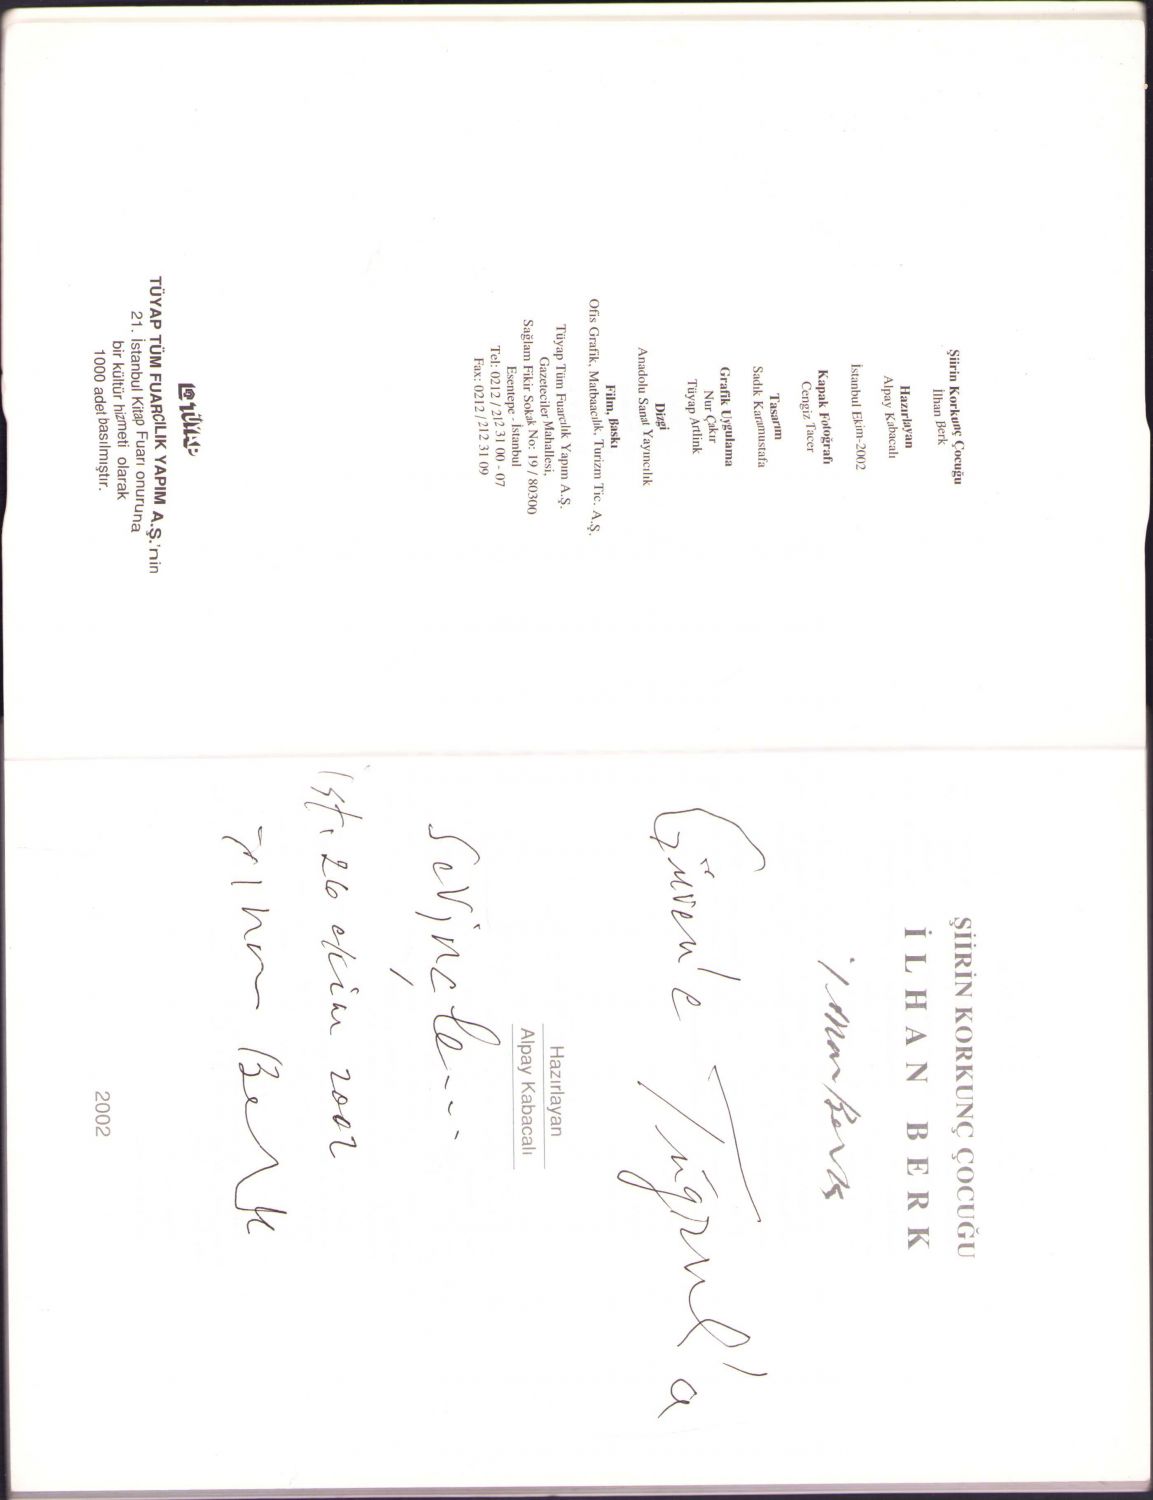 Şiirin Korkunç Çocuğu
İlhan Berk
Hazırlayan
Alpay Kabacalı
İstanbul Ekim-2002
Kapak Fotoğrafı
Cengiz Tacer
Tasarım
Sadık Karamustafa
Grafik Uygulama
Nur Çakır
Tüyap Artlink
Dizgi
Anadolu Sanat Yayıncılık
Film, Baskı
Ofis Grafik, Matbaacılık, Turizm Tic. A.Ş.
Tüyap Tüm Fuarcılık Yapım A.Ş.
Gazeteciler Mahallesi,
Sağlam Fikir Sokak No: 19 / 80300
Esentepe - İstanbul
Tel: 0212 / 212 31 00 - 07
Fax: 0212 / 212 31 09
TÜYAP
TÜYAP TÜM FUARCILIK YAPIM A.Ş.'nin
21. İstanbul Kitap Fuarı onuruna
bir kültür hizmeti olarak
1000 adet basılmıştır.
ŞİİRİN KORKUNÇ ÇOCUĞU
İLHAN BERK
ilhan Berk
Güven'e Tuğrul'a
Hazırlayan
Alpay Kabacalı
sevinçle...
ist. 26 ekim 2002
ilhan Berk
2002